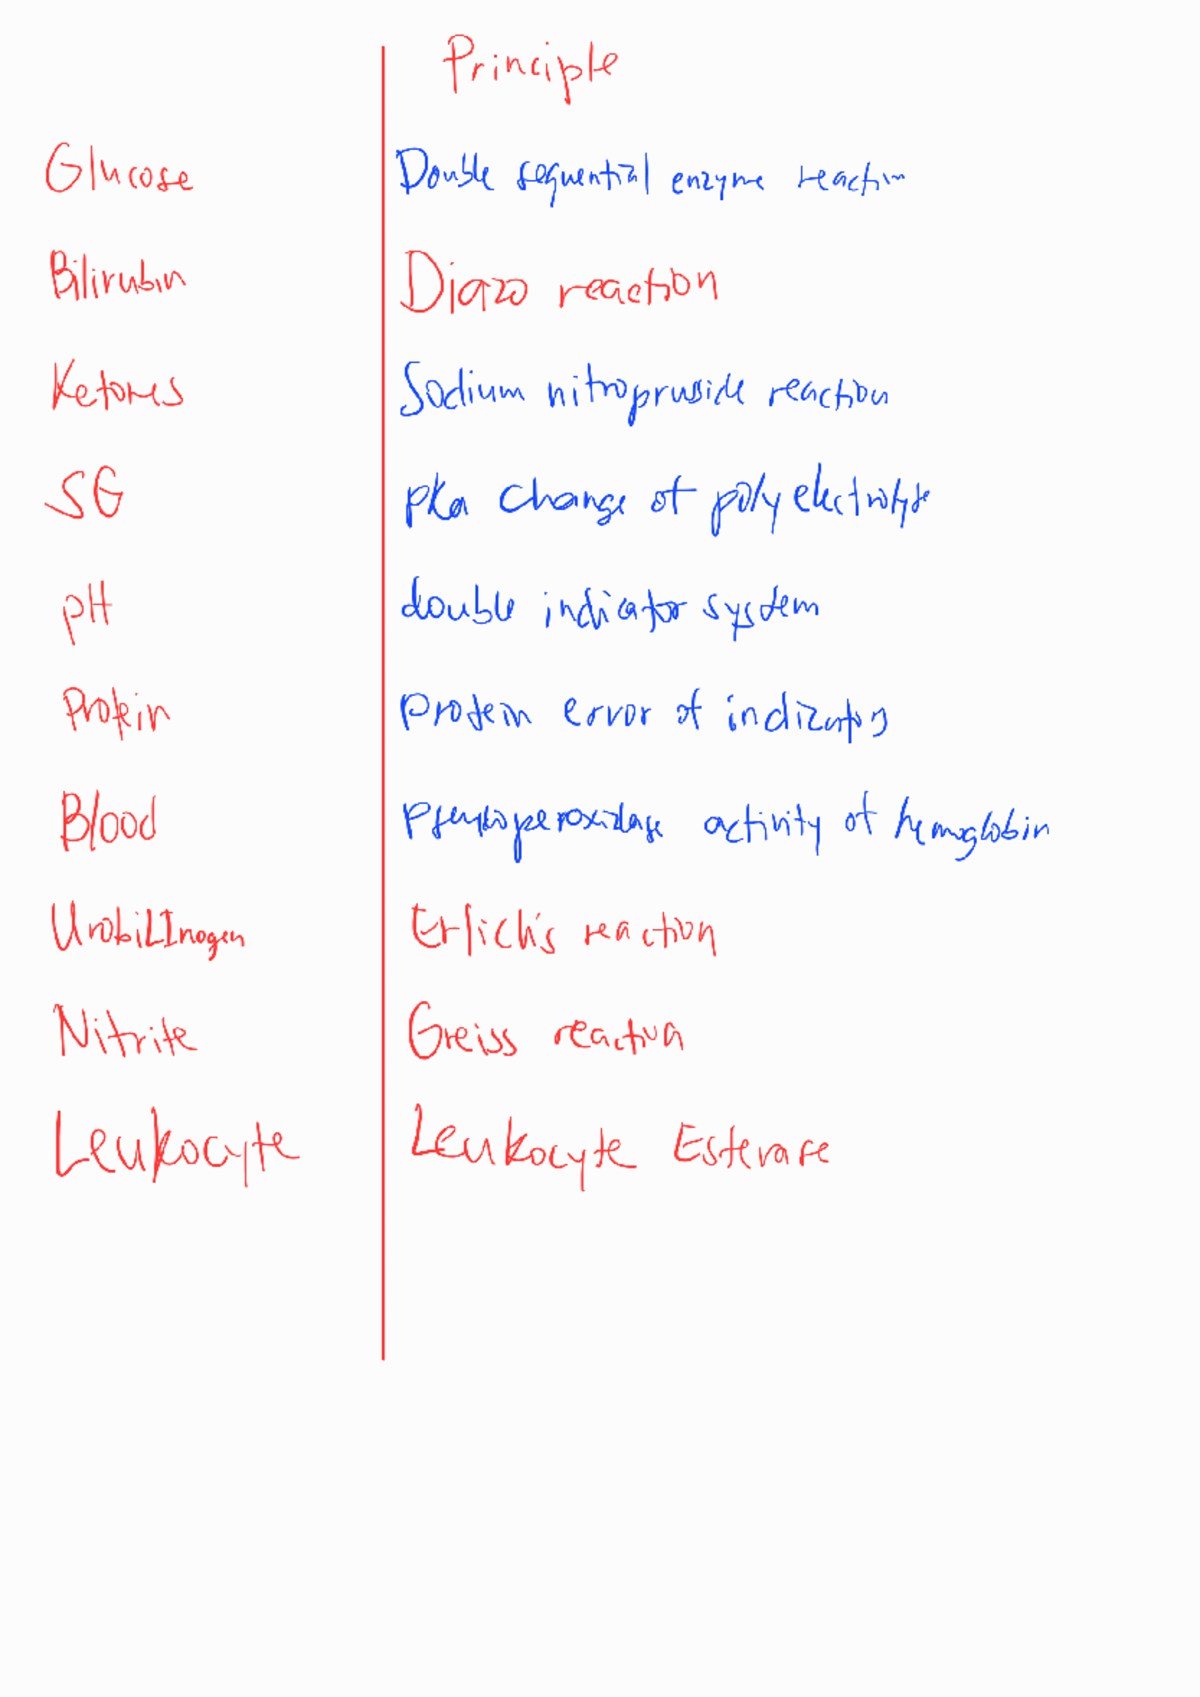 Principle
Glucose Double sequential enzyme reaction
Bilirubin Diazo reaction
Ketones Sodium nitroprusside reaction
SG pKa change of polyelectrolyte
pH double indicator system
Protein protein error of indicators
Blood Pseudoperoxidase activity of hemoglobin
UrobiLInogen Erlich's reaction
Nitrite Greiss reaction
Leukocyte Leukocyte Esterase